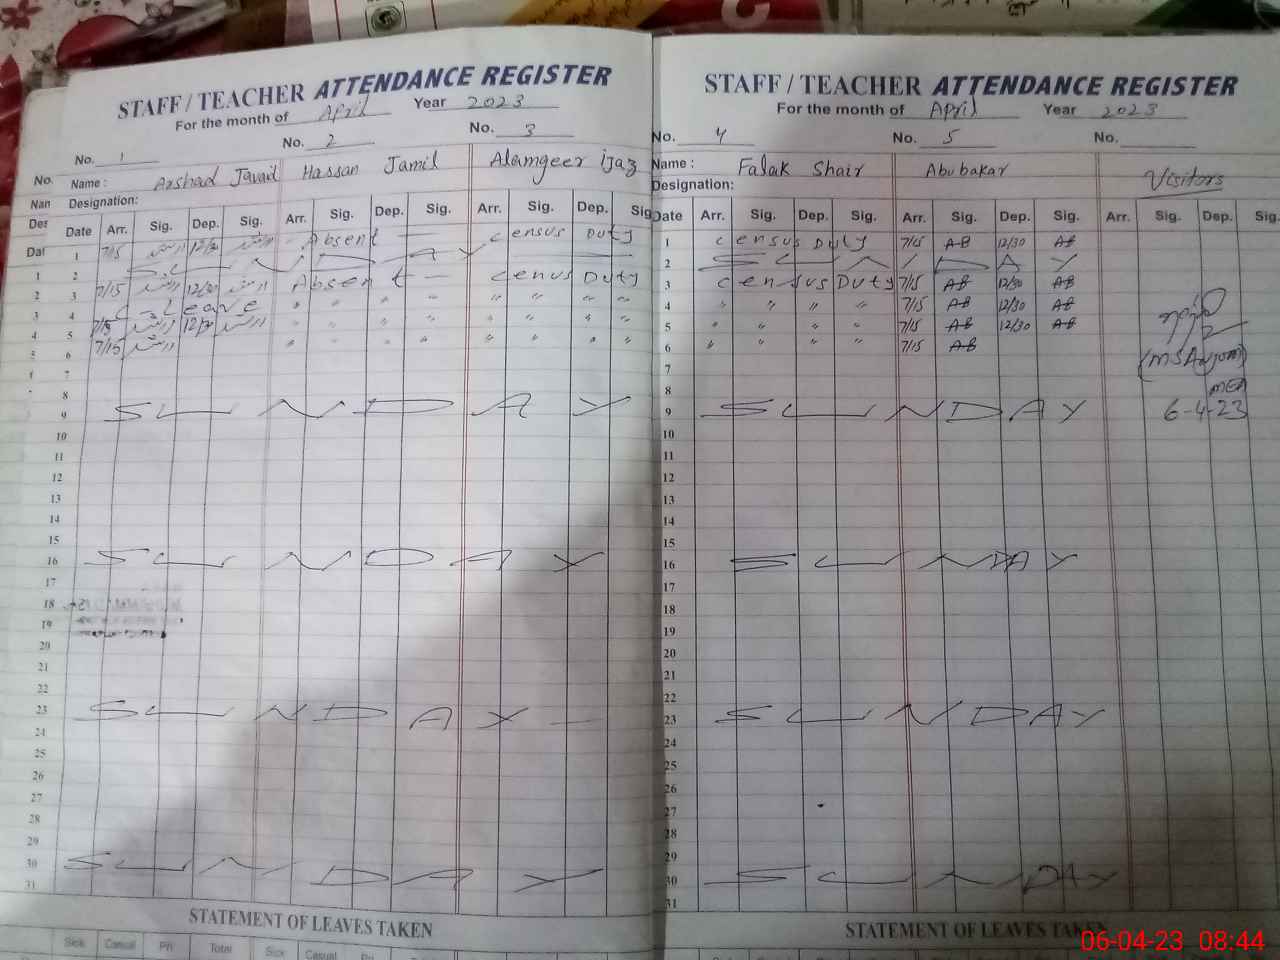 STAFF / TEACHER ATTENDANCE REGISTER
For the month of April Year 2023
No. 1 No. 2 No. 3
Name : Arshad Javaid Hassan Jamil Alamgeer ijaz
Designation:
Date Arr. Sig. Dep. Sig. Arr. Sig. Dep. Sig. Arr. Sig. Dep. Sig
1 7/15 ارشد 12/30 ارشد Absent — Census Duty
2 SUNDAY
3 7/15 ارشد 12/30 ارشد Absent — Cenus Duty
4 C — Leave " " " " " " " "
5 7/15 ارشد 12/30 ارشد " " " " " " " "
6 7/15 ارشد " " " " " " " "
7
8
9 SUNDAY
10
11
12
13
14
15
16 SUNDAY
17
18
19
20
21
22
23 SUNDAY —
24
25
26
27
28
29
30 SUNDAY
31
STATEMENT OF LEAVES TAKEN
Sick Casual Pri Total Sick Casual
STAFF / TEACHER ATTENDANCE REGISTER
For the month of April Year 2023
No. 4 No. 5 No.
Name : Falak Shair Abubakar Visitors
Designation:
Date Arr. Sig. Dep. Sig. Arr. Sig. Dep. Sig. Arr. Sig. Dep. Sig
1 Census Duty 7/15 AB 12/30 AB
2 SUNDAY
3 Census Duty 7/15 AB 12/30 AB
4 " " " " 7/15 AB 12/30 AB
5 " " " " 7/15 AB 12/30 AB
6 " " " " 7/15 AB
(MSAnjum)
7
8 MEA
9 SUNDAY 6-4-23
10
11
12
13
14
15
16 SUNDAY
17
18
19
20
21
22
23 SUNDAY
24
25
26
27
28
29
30 SUNDAY
31
STATEMENT OF LEAVES TAKEN
06-04-23 08:44